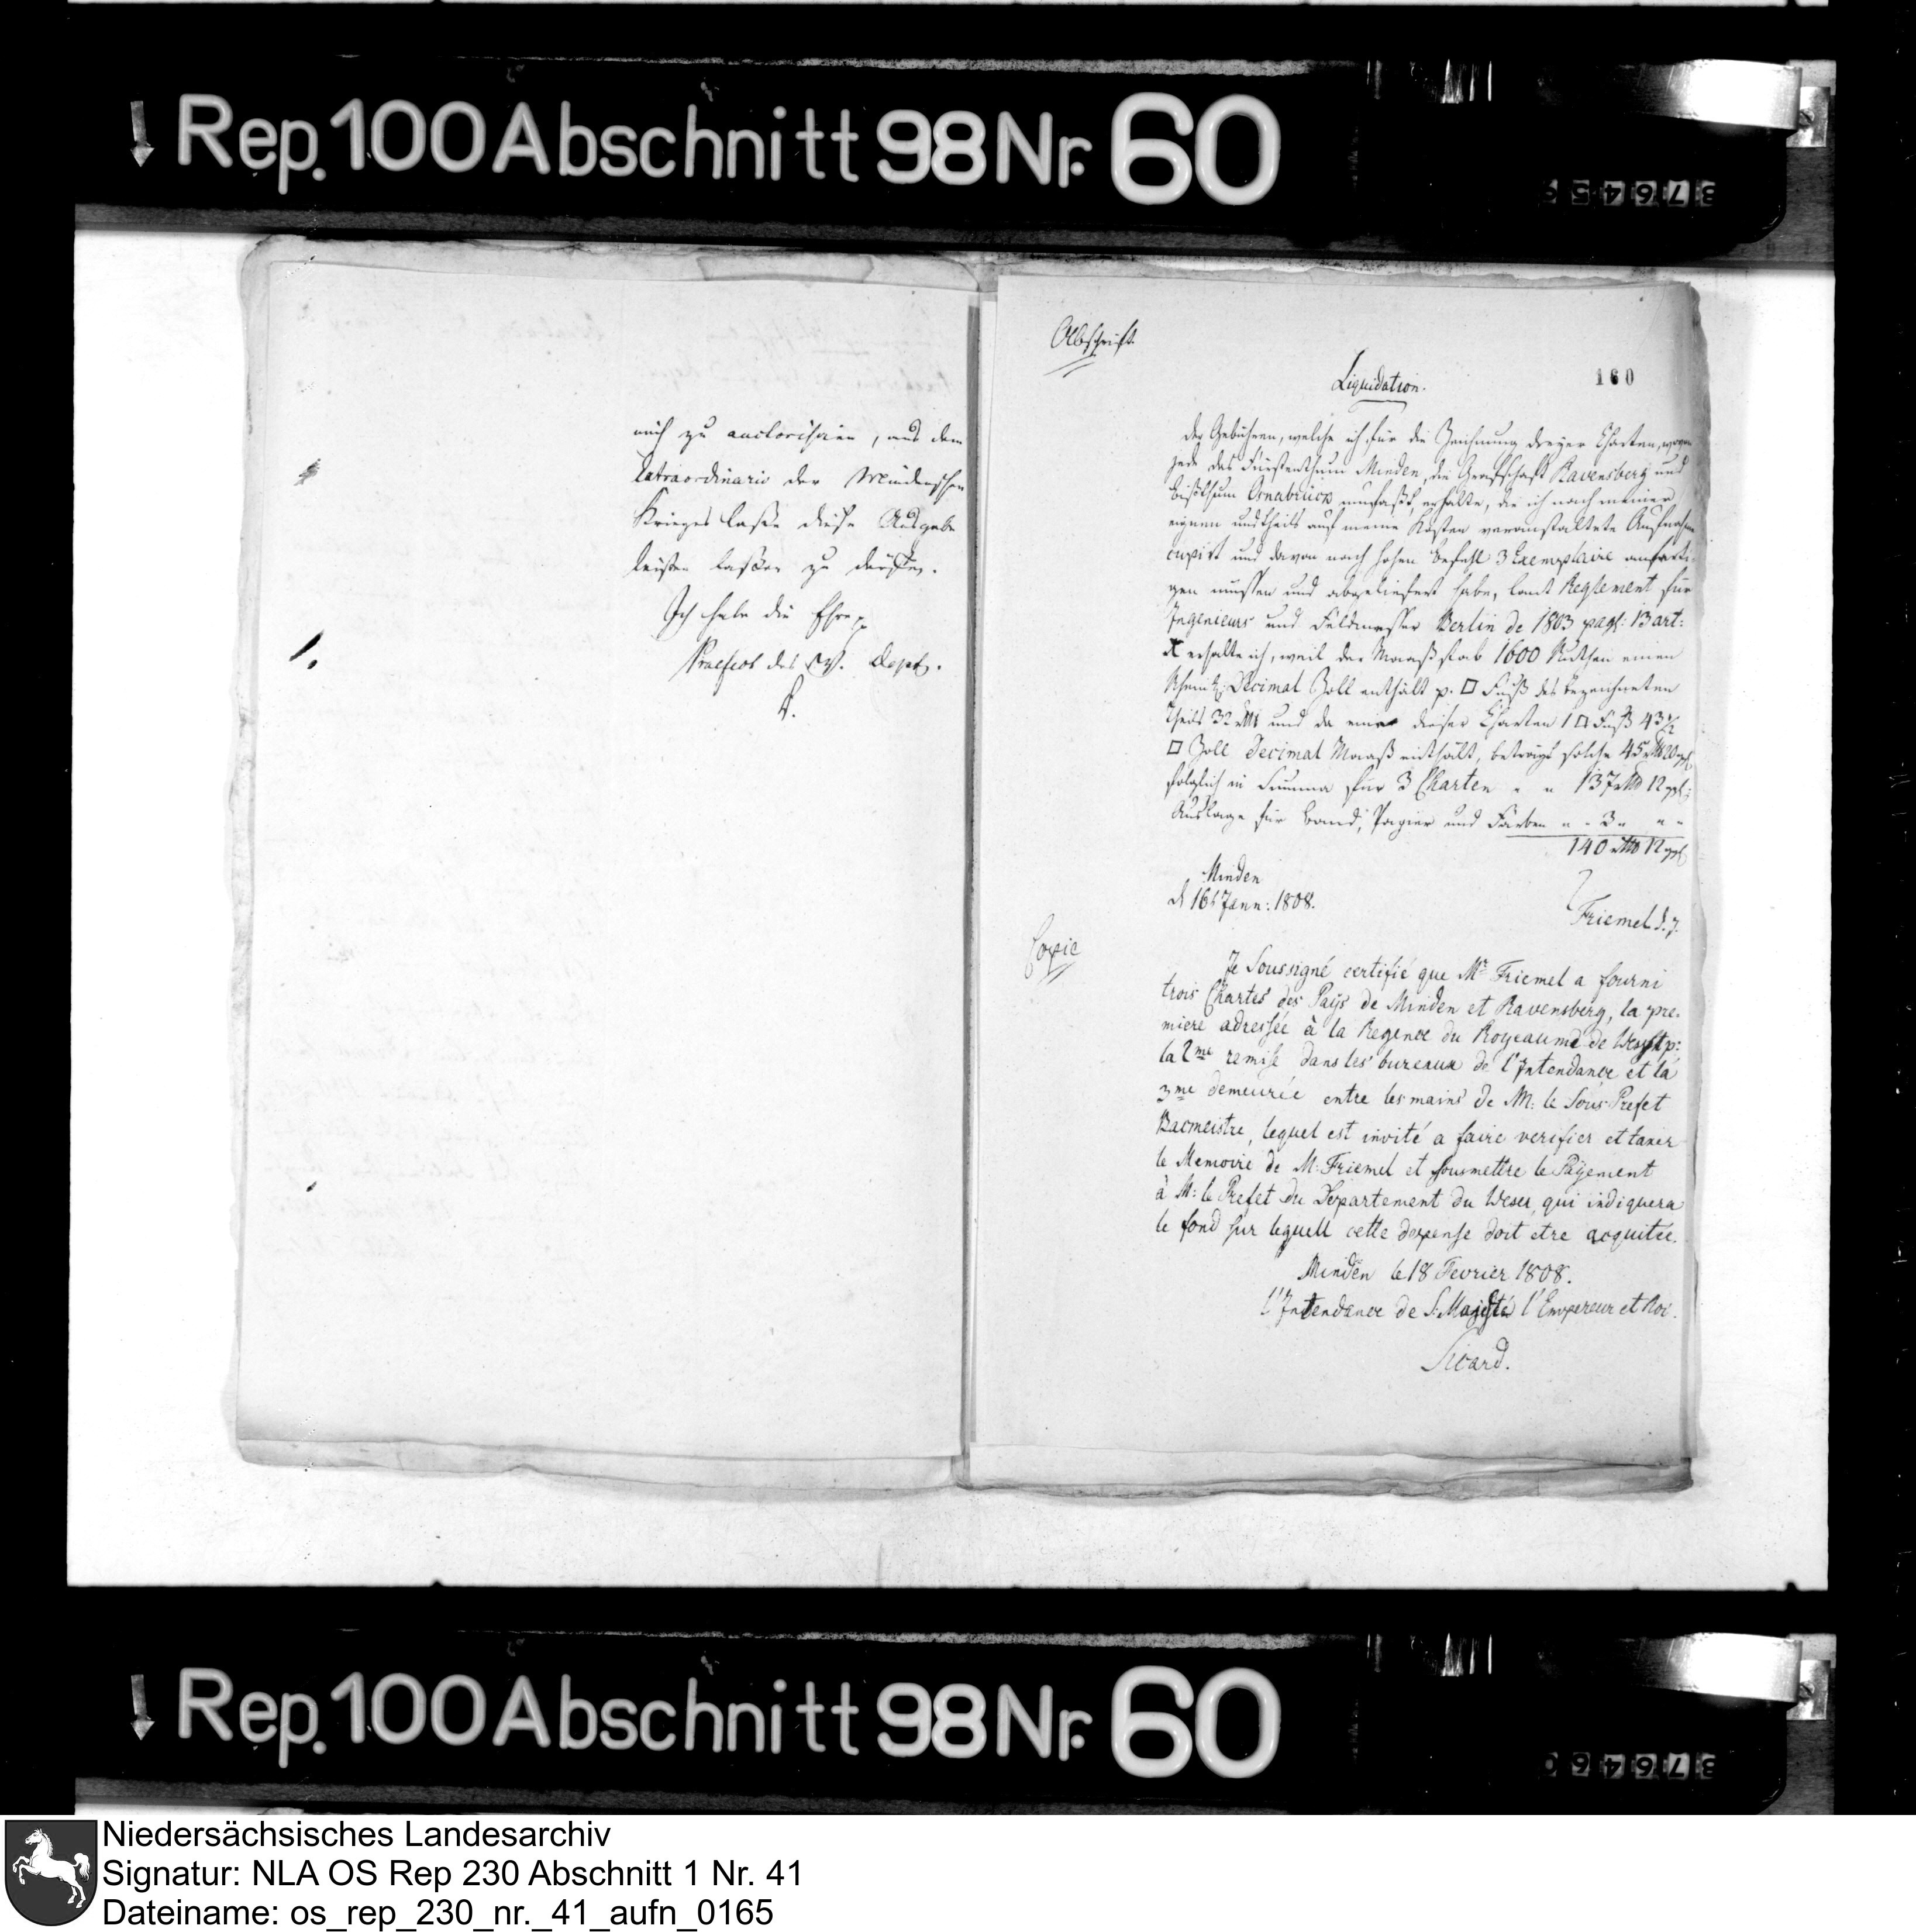 Rep. 100 Abschnitt 98 Nr. 60
mich zu auctorisiren, aus dem
Extraordinario der Mindenschen
Krieges Casse diese Ausgabe
leisten lassen zu dürfen.
Ich habe die Ehre
Praefect des W. Dept.
Abschrift
160
Liquidation.
der Gebühren, welche ich für die Zeichnung dreyer Charten, wovon
jede das Fürstenthum Minden, die Grafschaft Ravensberg und
Bißthum Osnabrück umfaßt, erhalte, die ich nach meiner
eignen und theils auf meine Kosten veranstaltete Aufnahme
copirt und davon nach hohen Befehl 3 Exemplaire anferti-
gen müssen und abgeliefert habe, laut Reglement für
Ingenieurs und Feldmesser Berlin de 1803 pag: 13 art:
X erhalte ich, weil der Maaßstab 1600 Ruthen einen
Rheinl: Decimal Zoll enthält p. □ Fuß des bezeichneten
Theils 32 rthl und da eine dieser Charten 1 □ Fuß 43 1/2
□ Zoll Decimal Maaß enthält, beträgt solche 45 rthl 20 ggl
folglich in Summa für 3 Charten " " 137 rthl 12 ggl:
Auslage für Band, Papier und Farben " " 3 " " "
140 rthl 12 ggl
Minden
d 16t Jann: 1808.
Friemel
Copie
Je Soussigné certifié que Mr Friemel a fourni
trois Chartes des Païs de Minden et Ravensberg, la pre-
miere adressée à la Regence du Royeaume de Westp:
la 2me remise dans les bureaux de l'Intendance et la
3me demeurée entre les mains de M: le Sous-Prefet
Bacmeistre, lequel est invité a faire verifier et taxer
le Memoire de M: Friemel et soumettre le Payement
à M: le Prefet du Departement du Weser, qui indiquera
le fond sur lequell cette depense doit etre acquitée.
Minden le 18 Fevrier 1808.
l'Intendance de S: Majesté l'Empereur et Roi.
Sicard.
Rep. 100 Abschnitt 98 Nr. 60
Niedersächsisches Landesarchiv
Signatur: NLA OS Rep 230 Abschnitt 1 Nr. 41
Dateiname: os_rep_230_nr._41_aufn_0165